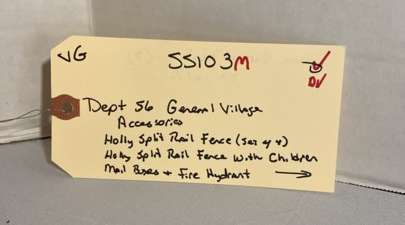 VG
55103M
DV
Dept 56 General Village
Accessories
Holly Split Rail Fence (Set of 4)
Holly Split Rail Fence with Children
Mail Boxes + Fire Hydrant →